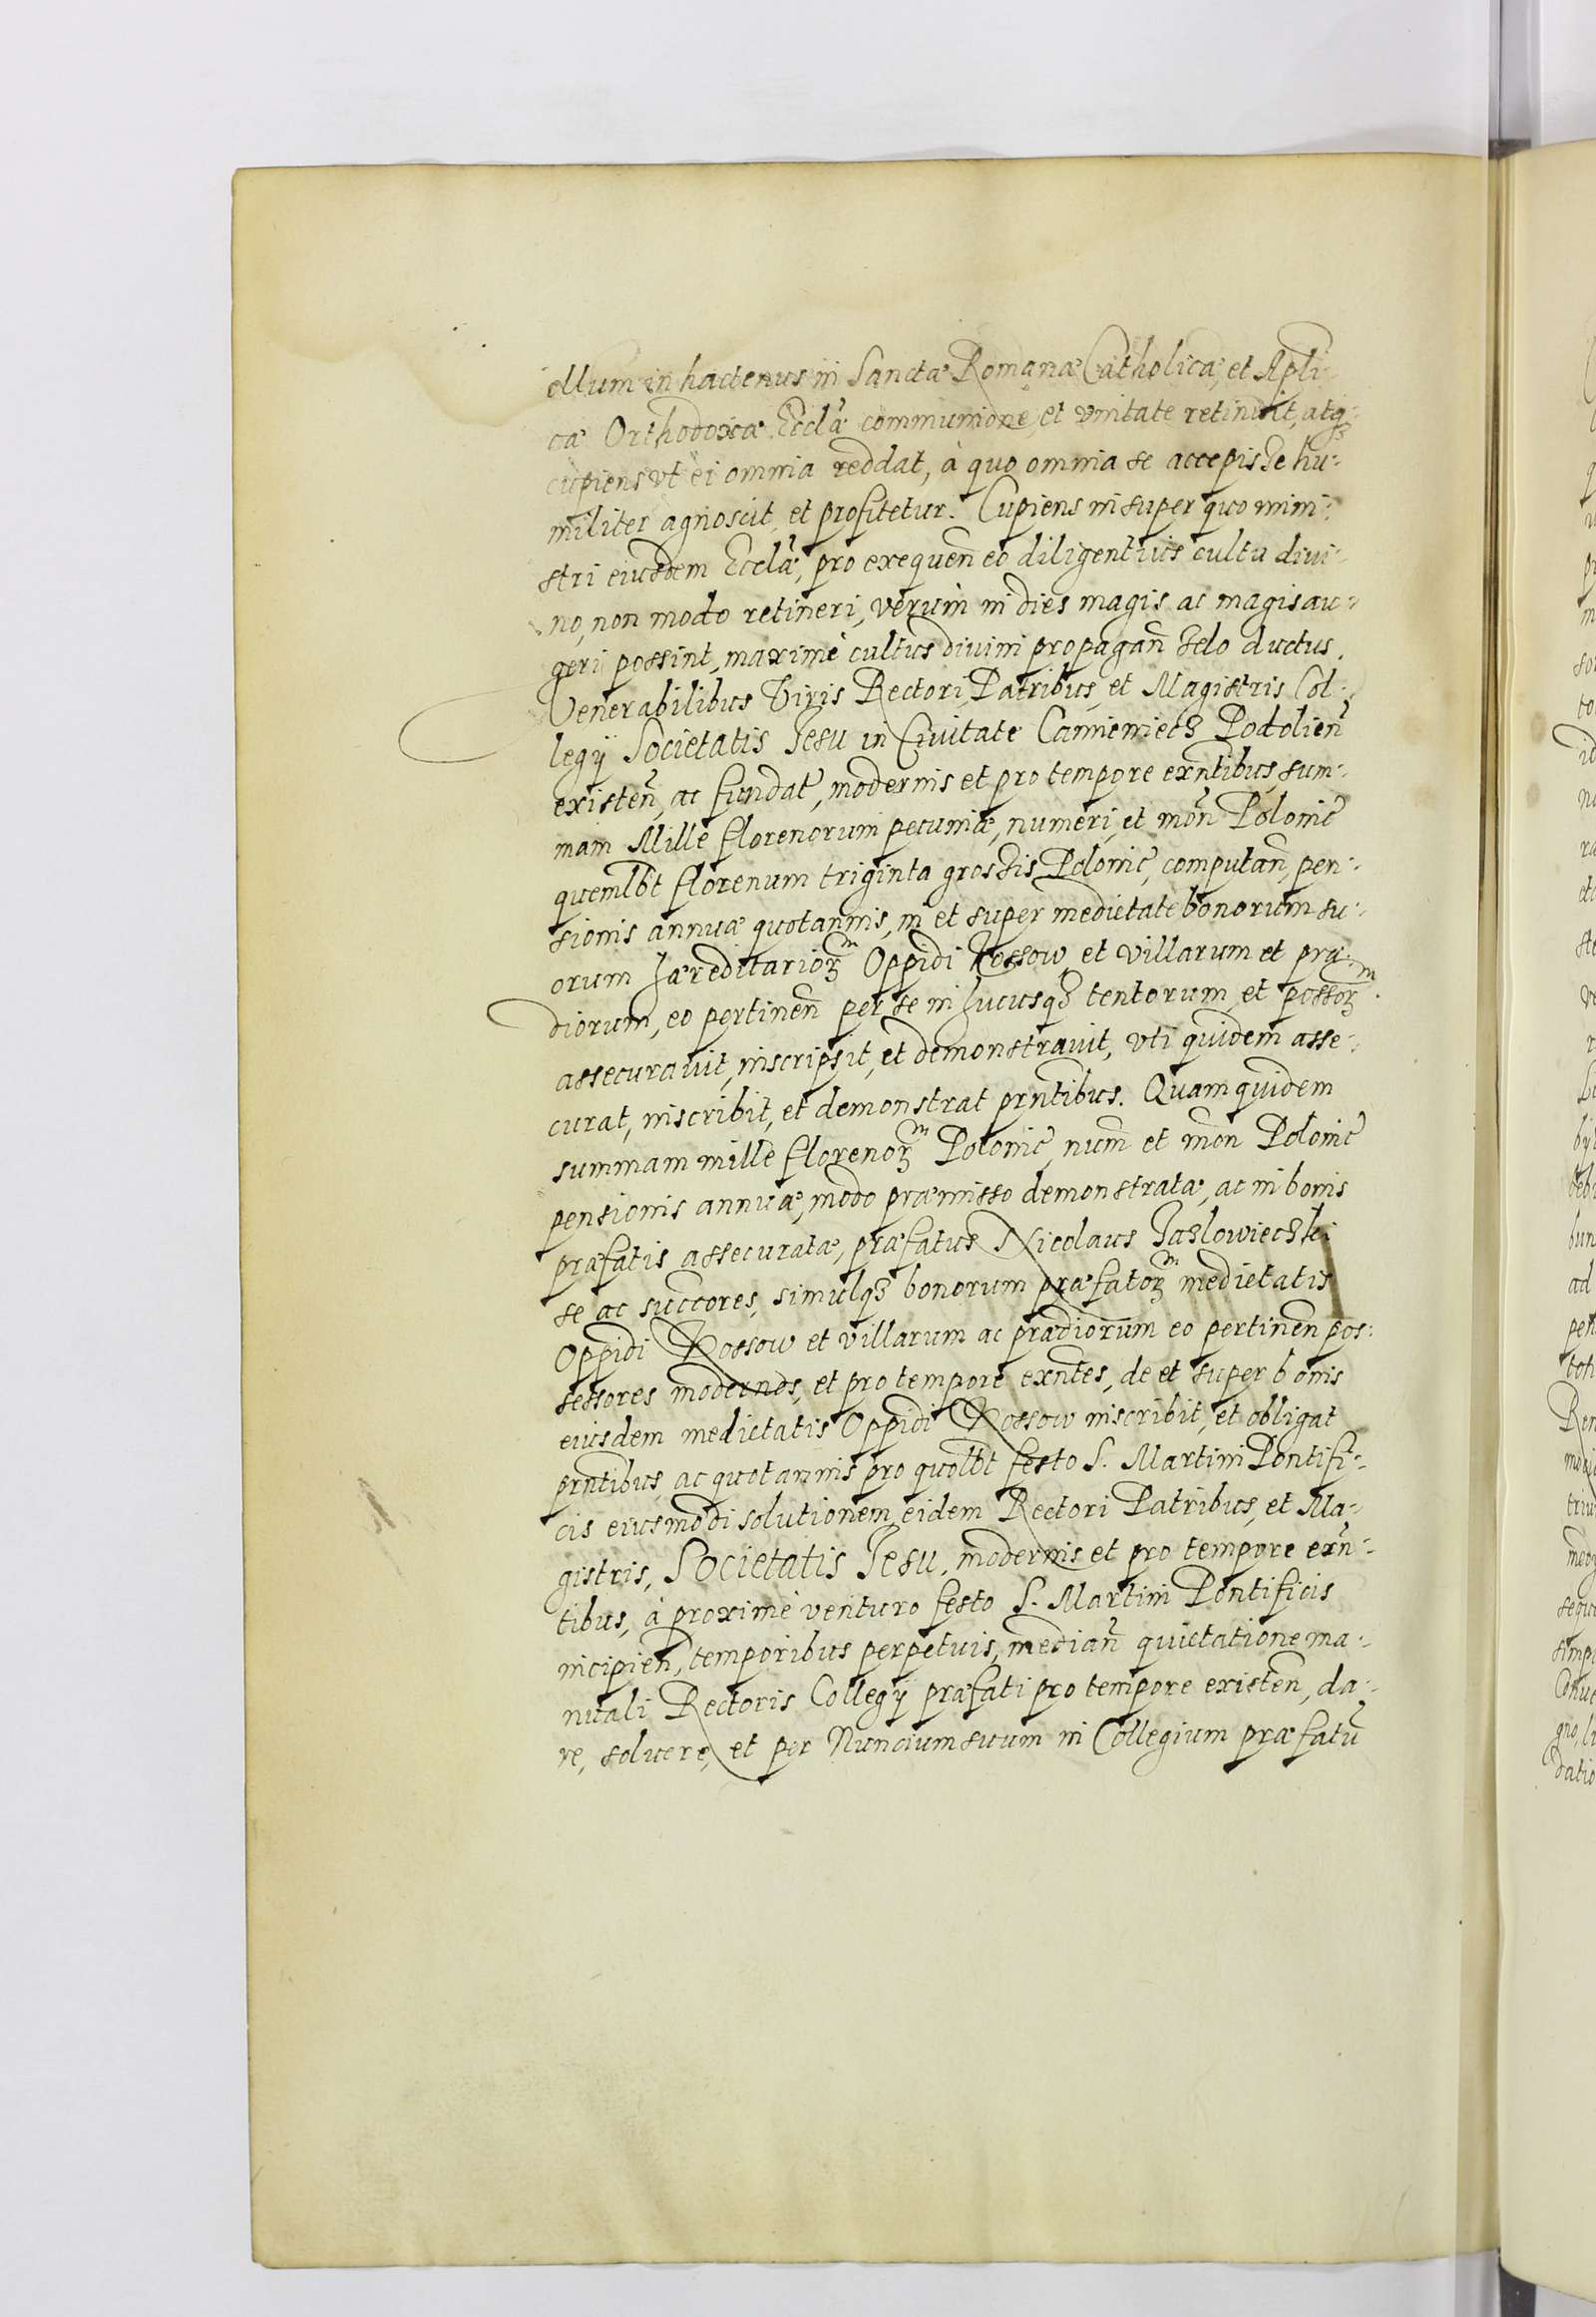 ellum in hactenus in Sanctæ Romanæ Catholicæ, et Apłi:
cæ Orthodoxæ Ecclæ communione, et vnitate retinuit, atq3
cupiens vt ei omnia reddat, à quo omnia se accepisse hu:
militer agnoscit, et profitetur. Cupiens insuper quo mini:
stri eiusdem Ecclæ, pro exequen̄ eo diligentius cultu diui:
no, non modo retineri, verum in dies magis ac magis au:
geri possint, maximè cultus diuini propagan̄ zelo ductus.
Venerabilibus Viris Rectori, Patribus, et Magistris Col:
legÿ Societatis Jesu in Ciuitate Camieniecz Podolien̄
existen̄, ac fundat̄, modernis et pro tempore exn̄tibus, sum:
mam Mille florenorum pecuniæ, numeri, et mon̄ Polonic̄
quemlbt florenum triginta grossis Polonic̄, computan̄, pen:
sionis annuæ quotannis, in et super medietate bonorum su:
orum hæreditarioꝝm Oppidi Kossow et villarum et præ:
diorum, eo pertinen̄ per se in hucusq3 tentorum et possoꝝm.
assecurauit, inscripsit, et demonstrauit, vti quidem asse:
curat, inscribit, et demonstrat prn̄tibus. Quam quidem
summam mille florenoꝝm Polonic̄, num̄ et mon̄ Polonic̄
pensionis annuæ, modo præmisso demonstratæ, ac in bonis
præfatis assecuratæ, præfatus Nicolaus Jazlowieczki
se ac succores, simulq3 bonorum præfatoꝝm medietatis
Oppidi Kossow et villarum ac prædiorum eo pertinen̄ pos:
sessores modernos, et pro tempore exn̄tes, de et super bonis
eiusdem medietatis Oppidi Kossow inscribit, et obligat
prn̄tibus, ac quotannis pro quolbt festo S. Martini Pontifi:
cis eiusmodi solutionem, eidem Rectori Patribus, et Ma:
gistris, Societatis Jesu, modernis et pro tempore exn̄:
tibus, à proximè venturo festo S. Martini Pontificis
incipien̄, temporibus perpetuis, median̄ quietatione ma:
nuali Rectoris Collegÿ præfati pro tempore existen̄, da:
re, soluere, et per Nuncium suum in Collegium præfatū